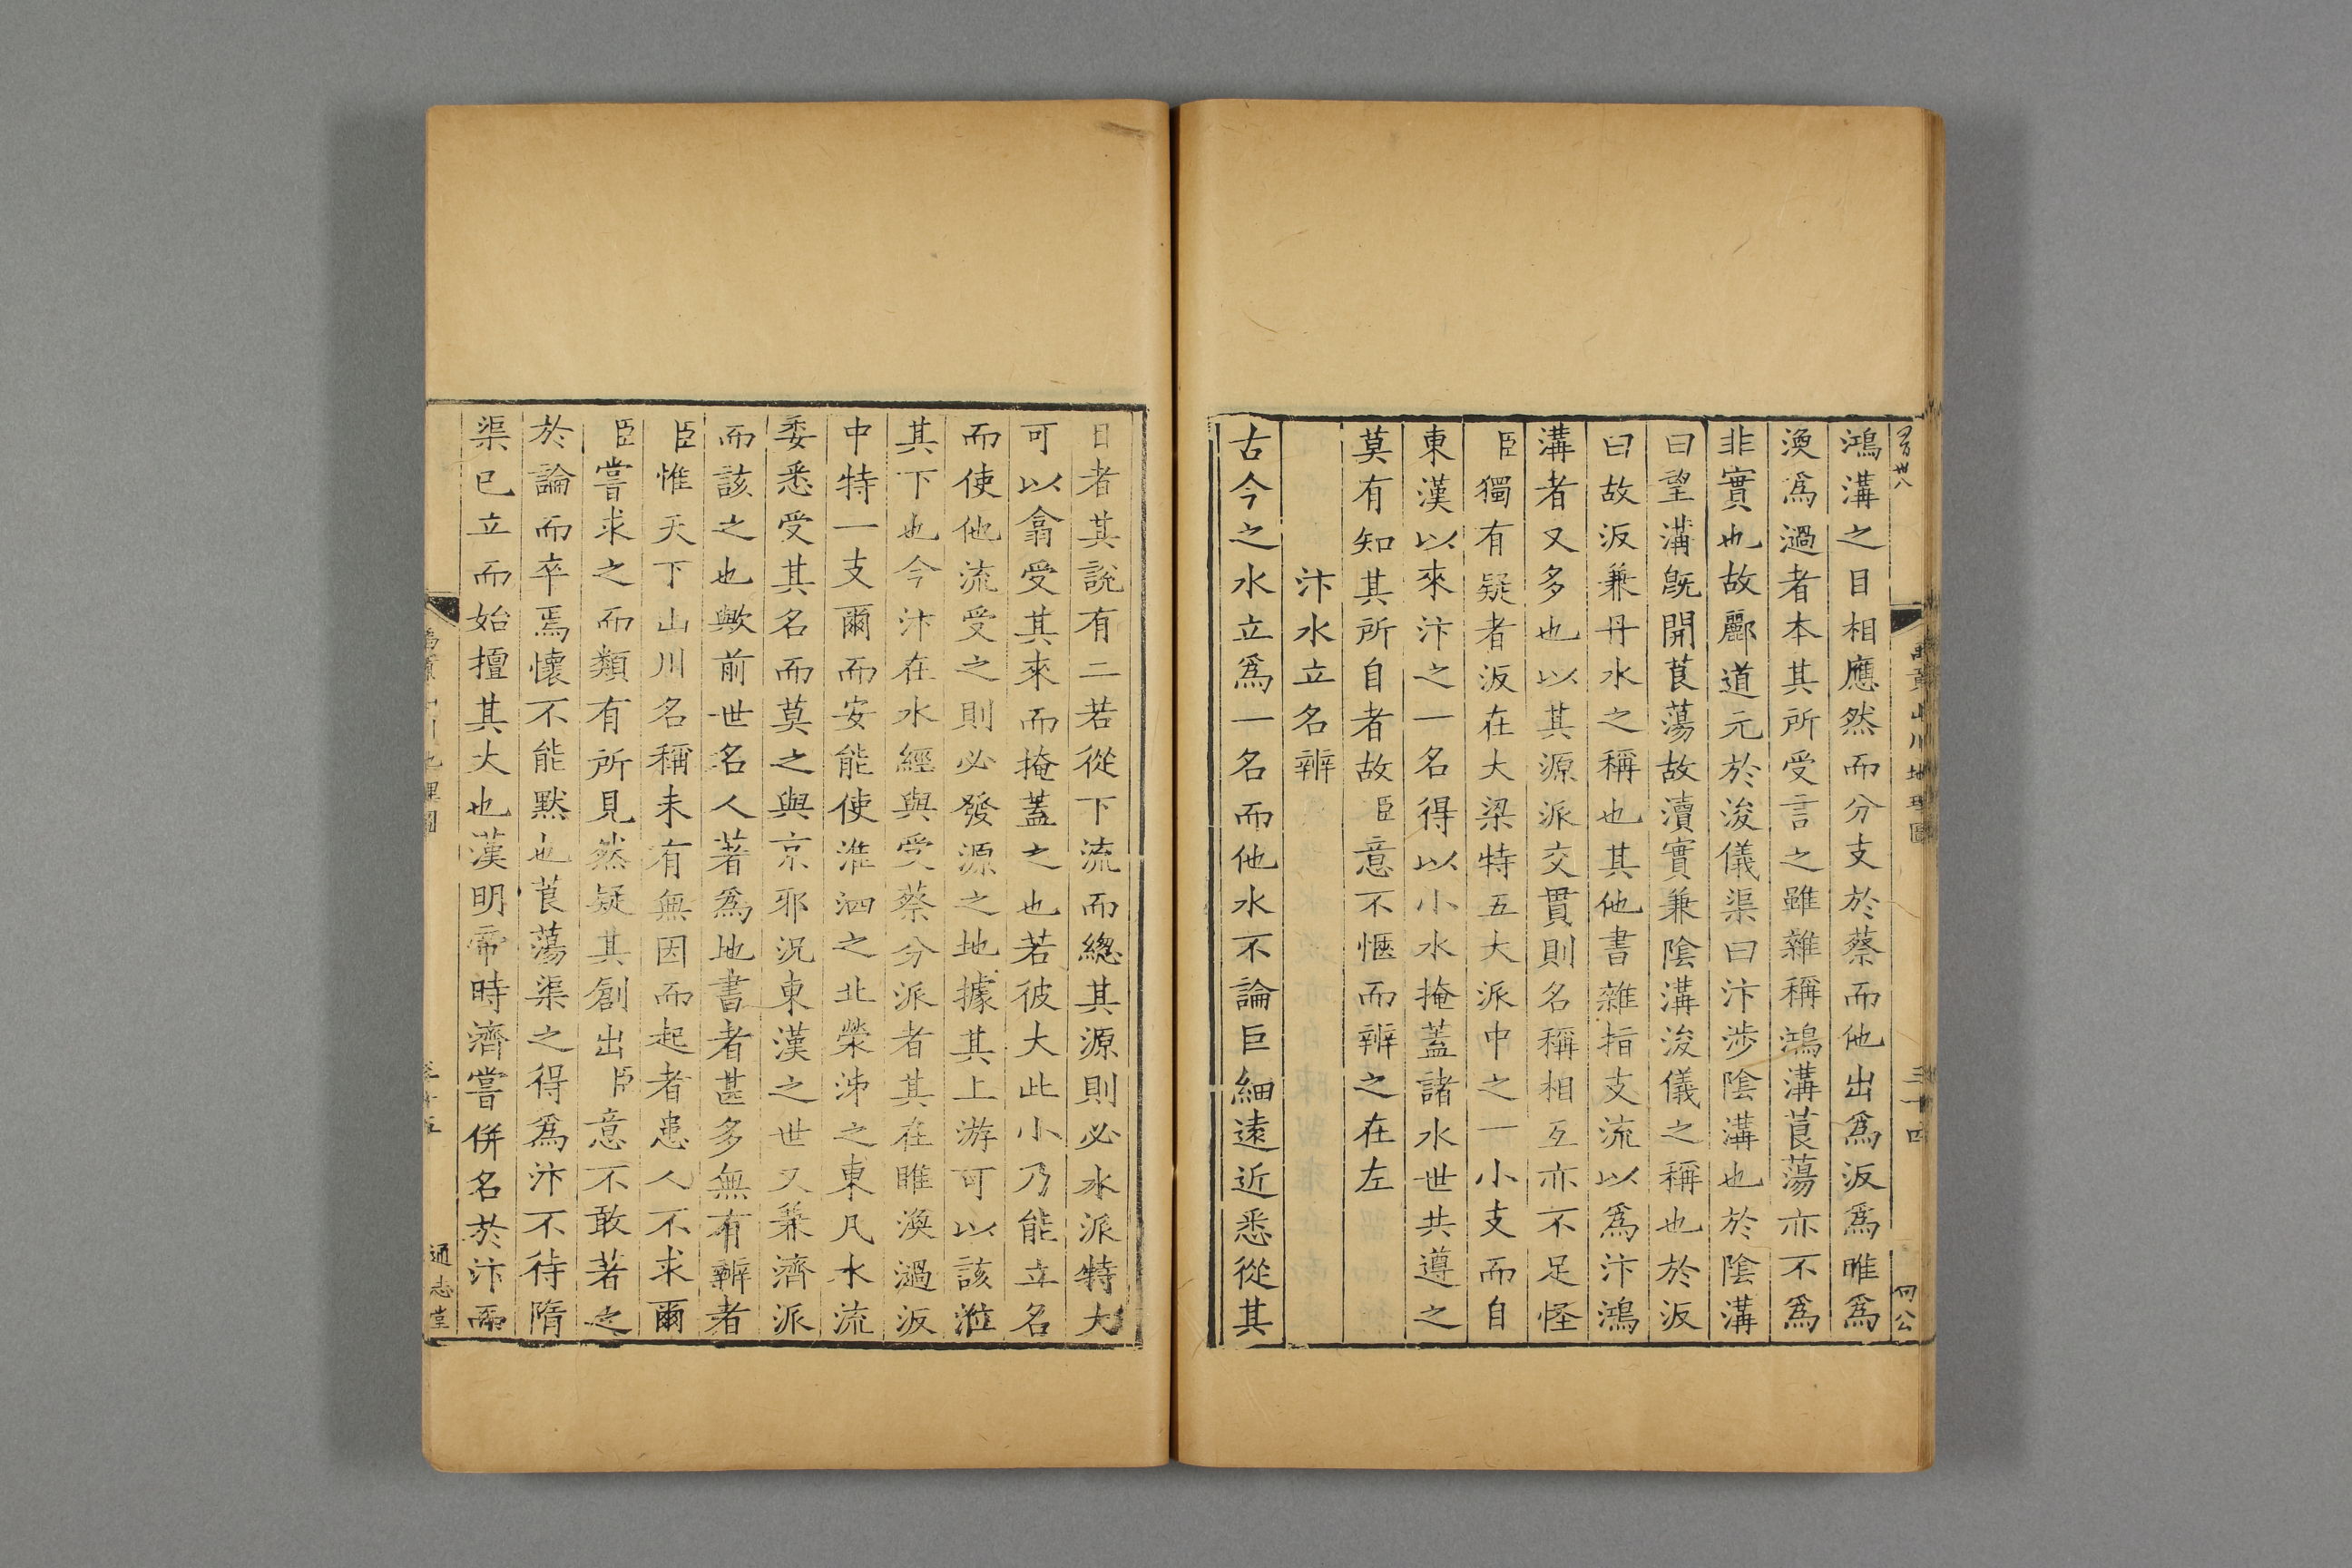 鴻溝之目相應然而分支於蔡而他出爲汳爲睢爲
渙爲過者本其所受言之雖雜稱鴻溝莨蕩亦不爲
非實也故酈道元於浚儀渠曰汴涉陰溝也於陰溝
曰望溝旣開莨蕩故瀆實兼陰溝浚儀之稱也於汳
曰故汳兼丹水之稱也其他書雜指支流以爲汴鴻
溝者又多也以其源派交貫則名稱相互亦不足怪
臣獨有疑者汳在大梁特五大派中之一小支而自
東漢以來汴之一名得以小水掩蓋諸水世共遵之
莫有知其所自者故臣意不愜而辨之在左
汴水立名辨
古今之水立爲一名而他水不論巨細遠近悉從其
目者其說有二若從下流而總其源則必水派特大
可以翕受其來而掩蓋之也若彼大此小乃能立名
而使他流受之則必發源之地據其上游可以該涖
其下也今汴在水經與受蔡分派者其在睢渙過汳
中特一支爾而安能使淮泗之北滎泲之東凡水流
委悉受其名而莫之與京邪況東漢之世又兼濟派
而該之也歟前世名人著爲地書者甚多無有辨者
臣惟天下山川名稱未有無因而起者患人不求爾
臣嘗求之而類有所見然疑其創出臣意不敢著之
於論而卒焉懷不能默也莨蕩渠之得爲汴不待隋
渠已立而始擅其大也漢明帝時濟嘗併名於汴而
通志堂